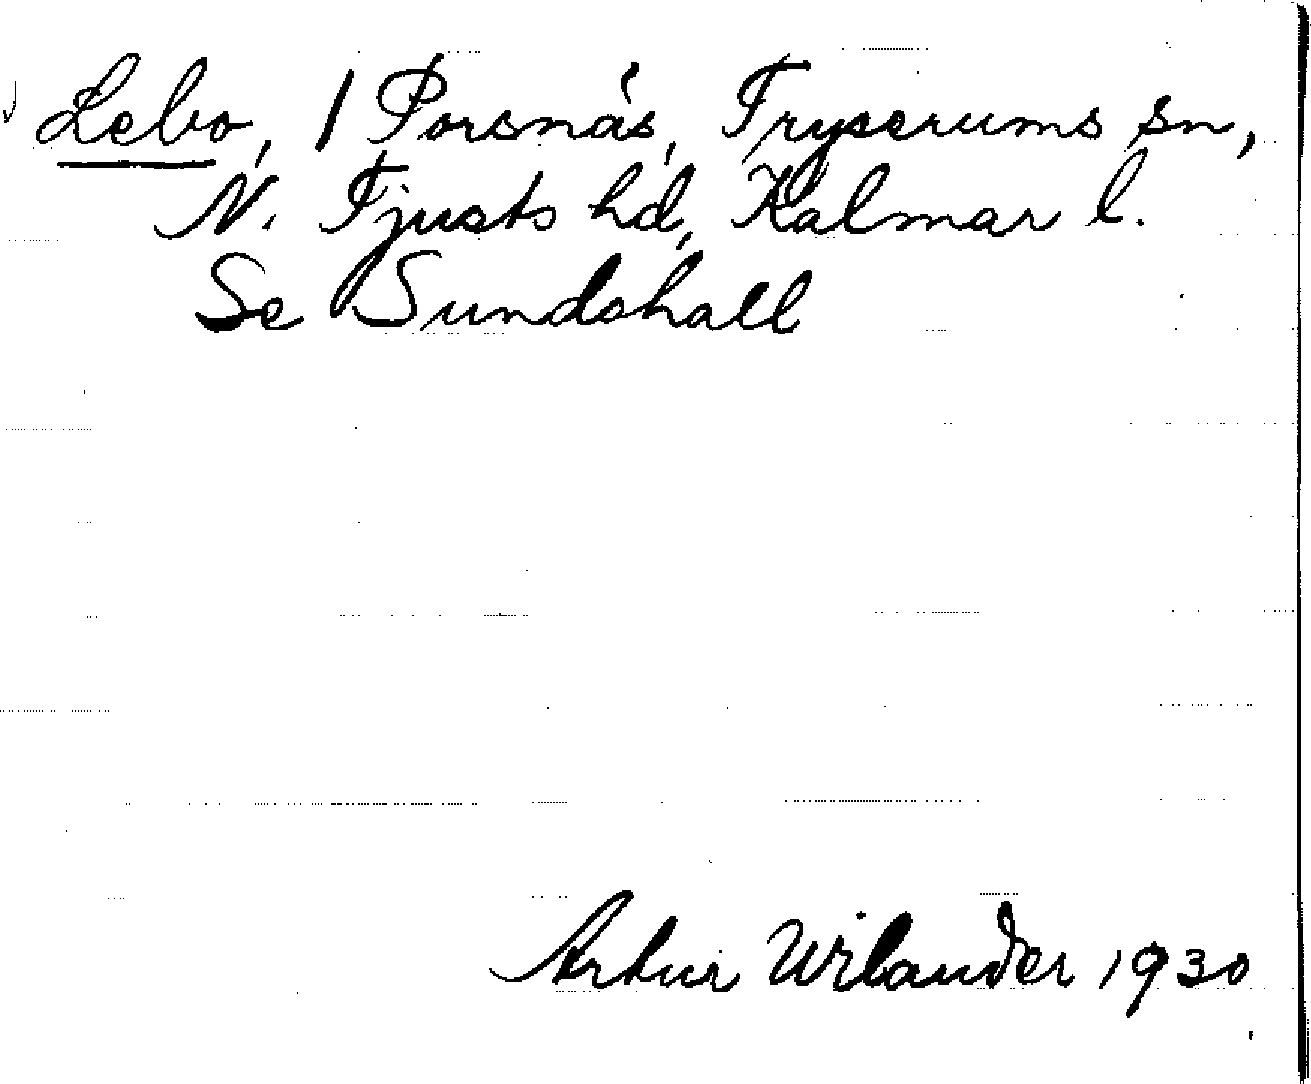 Lebo, / Porsnäs, Tryserums sn,
N. Tjusts hd, Kalmar l.
Se Sundshall
Artur Wilander 1930